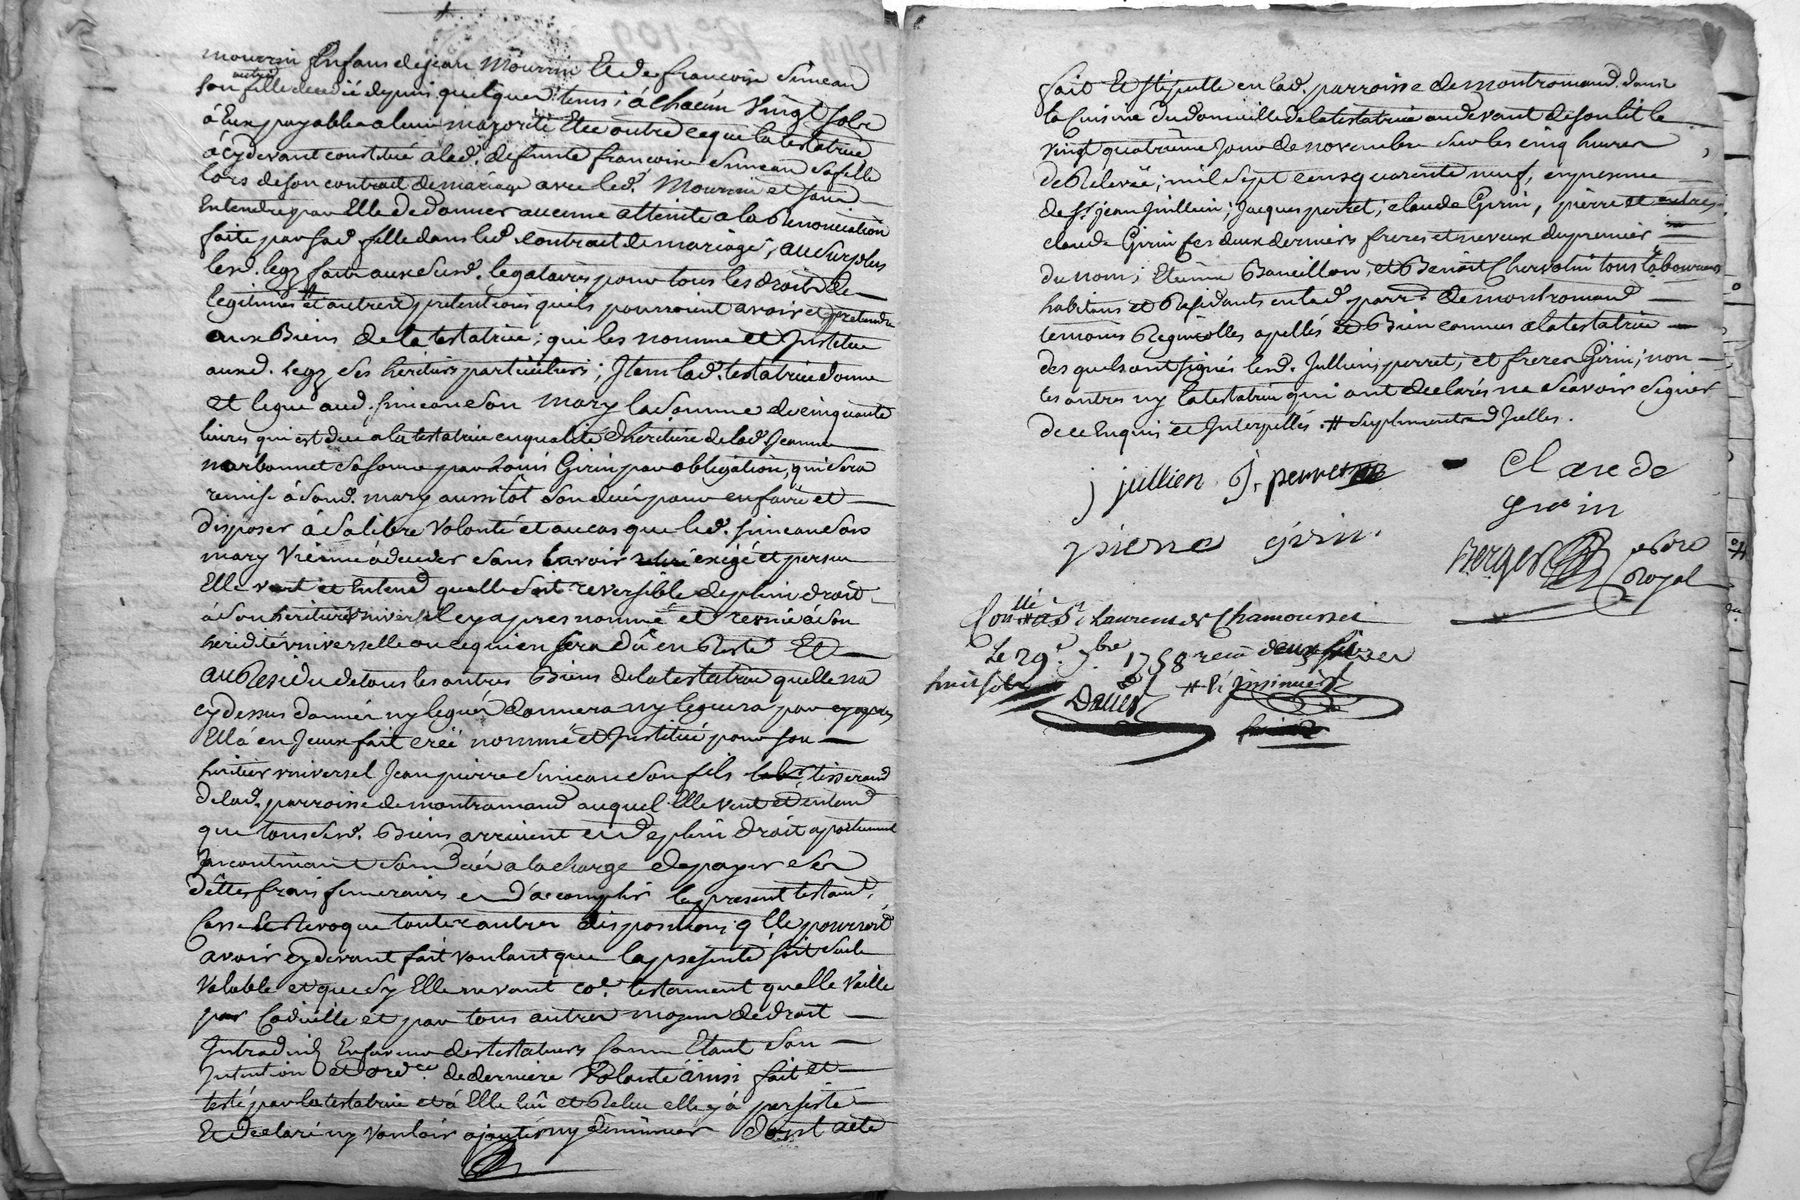 mourrin Enfans de jean Mourrin Et de francoise Simean
son autre fille decedé depuis quelques tems; á chacun vingt sols
á Eux payables a leur majorité Et ce outre ce que la testatrice
á cy devant constitué a lad. defunte francoise Simean sa fille
lors de son contrait de mariage avec led. Mourrin et sans
Entendre par Elle de donner aucune atteinte a la Renonciation
faite par sad. fille dans led. contrait de mariage; au surplus
lesd. legz faits aux susd. legataires pour tous les droits de
legitimes # et autres pretentions quels pourroient avoir et pretendre
aux Biens de la testatrice; qui les nomme et Institue
auxd. legz ses héritiers particuliers; Item lad. testatrice donne
et legue aud. simean son mary la somme de cinquante
livres qui est due a la testatrice en qualité d'heritiere de lad. Jeanne
narbonnet sa soeur par Louis Girin par obligation, qui sera
remise á sond. mary aussitôt son decés pour en faire et
disposer á sa libre volonté et au cas que led. simean son
mary vienne á deceder sans l'avoir exigé et persu
Elle veut et Entend quelle soit reversible de plein droit
á son heritier universel cy apres nommé et reunie á son
heridité universelle ou ce qui en sera dû en Reste Et
au Residu de tous les autres Biens de la testatrice quelle na
cy dessus donnér ny leguér donnera ny leguera par cy apres
Elle á en Iceux fait creé nommé et Institué pour son
heritier universel Jean pierre Simean son fils tisserand
de lad. parroisse de montromand auquel Elle veut et entend
que tous sesd. Biens arrivent et de plein droit apartiennent
Incontinant son decés a la charge de payer ses
dêttes frais funeraires et d'acomplir le present testamt.
Casse Et Revoque toutes autres dispositions q'lle pourroit
avoir cy devant fait voulant que la presente soit seule
valable et que sy Elle ne vaut coe. testament quelle vaille
par Codicille et par tous autres moyens de droit
Introduits En faveur des testateurs comme Etant son
Intention et ordce. de derniere volonté ainsi fait et
testé par la testatrice et á Elle lû et Relu elle y á persisté
Et declaré ny vouloir ajouter ny diminuer dont acte
fait Et stipullé en lad. parroisse de montromand dans
la cuisine du domicille de la testatrice au devant de son lit le
vingt quatrième jour de novembre sur les cinq heures
de Relevée; mil sept cens quarente neuf, en presence
de sr. jean Jullien; Jacques perret; claude Girin, pierre et autre
claude Girin ces deux derniers freres et neveux du premier
du nom; Etienne Baneillon, et Benoit Chervolin tous laboureurs
habitans et Residants en lad. parr. de montromand
temoins Reginicolles apellés et Bien connus a la testatrice
des quels ont signés lesd. Jullien, perret, et freres Girin; non
les autres ny la testatrice qui ont declarés ne sçavoir signer
de ce Enquis et Interpellés. # suplement d'Icelles.
j jullien J. perret Claude
girin
piere girin.
Berger nore
Royal
Conllé á St Laurent de Chamousset
Le 29e. 7bre 1758 recu deux livres
huit sols
# Et Insinué